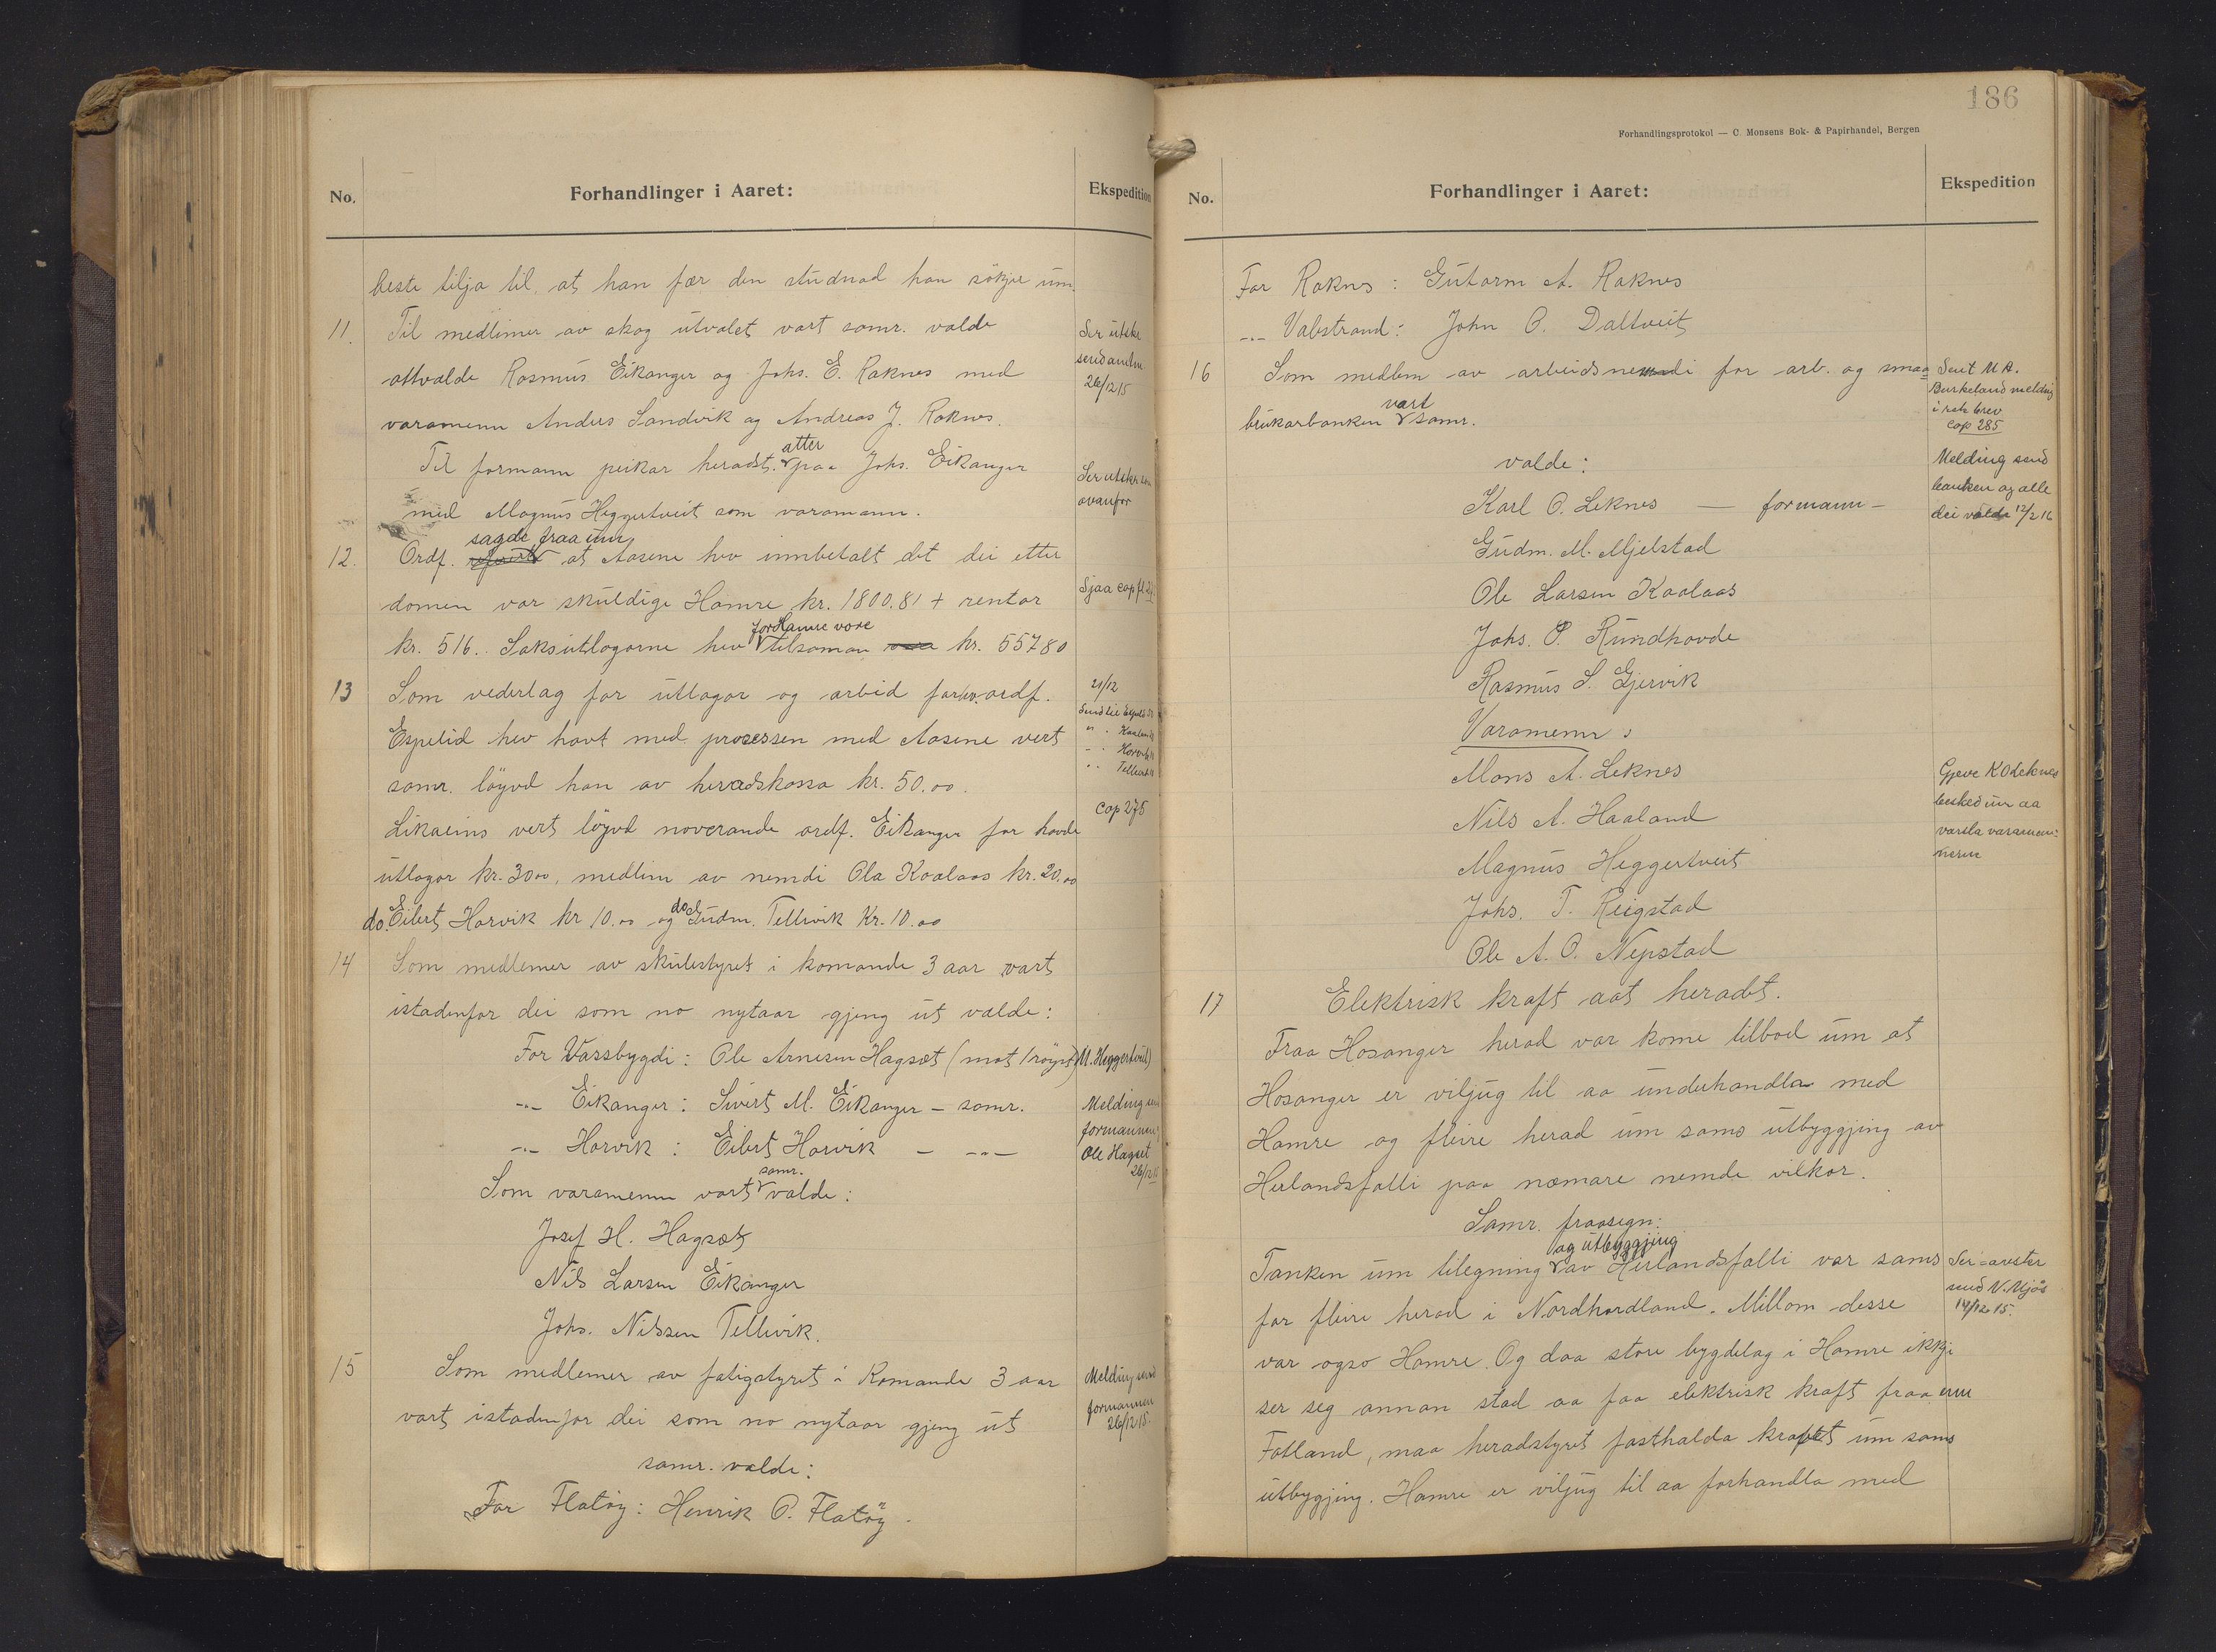 No.
Forhandlinger i Aaret:
Ekspedition
beste tilja til at han fær den studnad han sökjer um.
11. Til medlimer av skog utvalet vart samr. valde
attvalde Rasmus Eikanger og Johs. E. Raknes med
varamenn Anders Sandvik og Andreas J. Raknes.
Ser utskr.
send amtm.
26/12 15
Til formann peikar heradst. atter paa Johs. Eikanger
med Magnus Heggertveit som varamann.
Ser utskr. som
ovanfor
12. Ordf. sagde fraa um at Aasene hev innbetalt det dei etter
domen var skuldige Hamre kr. 1800.81 + rentor
kr. 516. Saksutlogorne hev for Hamre vore tilsaman kr. 557 80
Sjaa cop
13 Som vederlag for utlogor og arbeid forhv. ordf.
Espelid hev havt med prosessen med Aasene vert
samr. löyvd han av heradskassa kr. 50.00.
Likaeins vert löyvd noverande ordf. Eikanger for havde
utlogor kr. 30 00, medlim av nemdi Ola Kaalaas kr. 20.00
do. Eilert Horvik kr 10.00 og do Gudm. Tellevik Kr. 10.00
21/12
Cop 275
14 Som medlemer av skulestyret i komande 3 aar vart
istadenfor dei som no nytaar gjeng ut valde:
For Vassbygdi: Ole Arnesen Hagsæt (mot 1 röyst) M. Heggertveit)
-"- Eikanger: Sivert M. Eikanger - samr.
-"- Horvik: Eilert Horvik - -"-
Melding send
formannen,
Ole Hagset
26/12 15
Som varamenn vart samr. valde:
Josef H. Hagsæt
Nils Larsen Eikanger
Johs. Nilssen Tellevik.
15 Som medlemer av fatigstyret i Komande 3 aar
vart istadenfor dei som no nytaar gjeng ut
samr. valde:
Melding send
formannen
26/12 15.
For Flatöy: Henrik O. Flatöy.
186
Forhandlingsprotokol — C. Monsens Bok- & Papirhandel, Bergen
No.
Forhandlinger i Aaret:
Ekspedition
For Raknes: Gutorm A. Raknes
-"- Valestrand: John O. Daltveit
16 Som medlem av arbeidsnemdi for arb. og smaa
brukarbanken vart samr.
valde:
Sent M A.
Burkeland melding
i rek brev
Cop 285
Melding send
banken og alle
dei valde 12/2 16
Karl O. Leknes — formann -
Gudm. M. Mjelstad
Ole Larsen Kaalaas
Johs. O. Rundhovde
Rasmus S. Gjervik
Varamenn:
Mons A. Leknes
Nils A. Haaland
Magnus Heggertveit
Johs. T. Reigstad
Ole A. O. Nepstad
Gjeve K O Leknes
besked um aa
varsla varamen-
nerne
17 Elektrisk kraft aat heradet.
Fraa Hosanger herad var kome tilbod um at
Hosanger er viljug til aa underhandla med
Hamre og fleire herad um sams utbyggjing av
Herlandsfalli paa næmare nemde vilkor.
Samr. fraasegn:
Tanken um tilegning og utbyggjing av Herlandsfalli var sams
for fleire herad i Nordhordland. Millom desse
var ogso Hamre. Og daa store bygdelag i Hamre ikkje
ser seg annan stad aa faa elektrisk kraft fraa enn
Fotland, maa heradstyret fasthalda kravet um sams
utbygjing. Hamre er viljug til aa forhandla med
send V. Mjös
14/12 15.